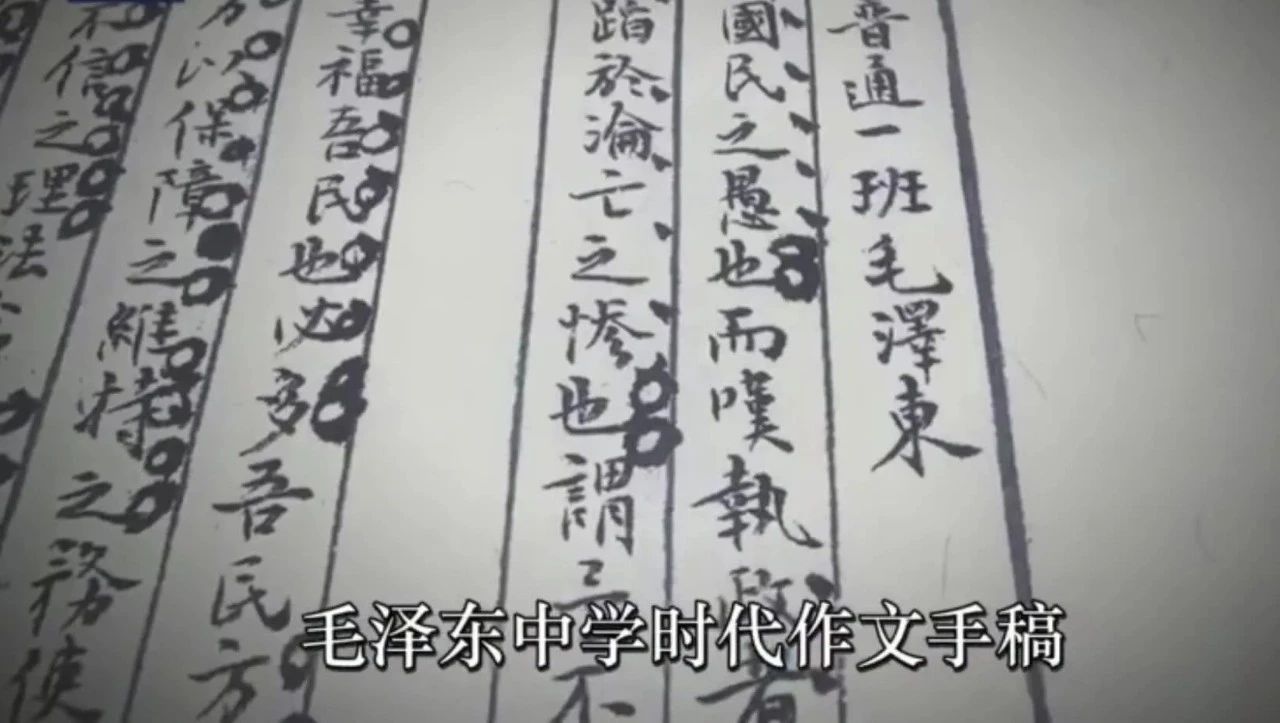 普通一班毛澤東
國民之愚也而嘆執政者
蹈於淪亡之慘也謂三不
幸福吾民也必多吾民方
以保障之維持之務使
信之理法
毛泽东中学时代作文手稿